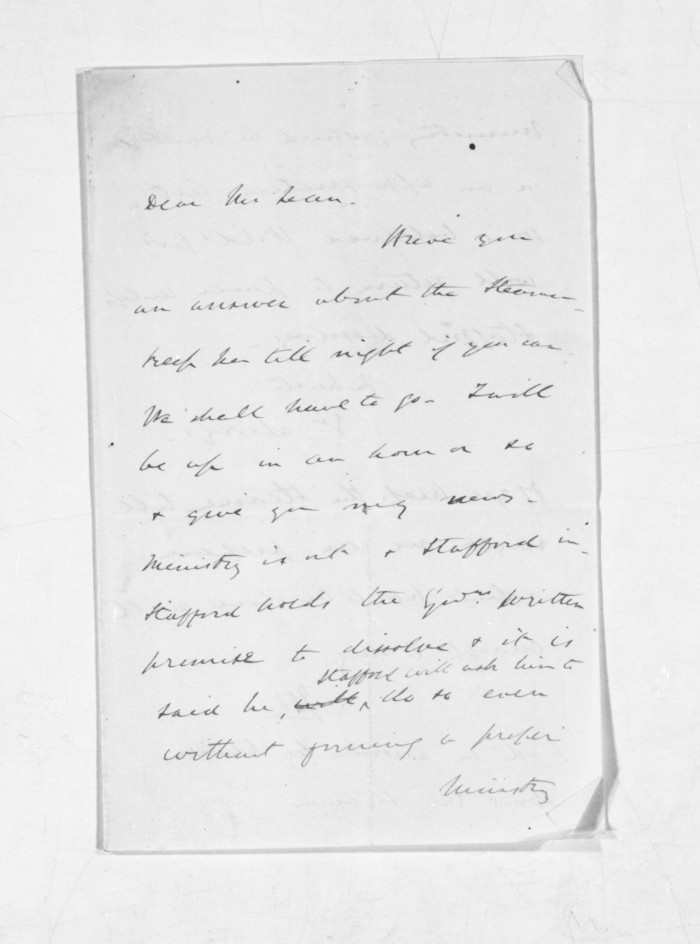 Dear Mr Lean.
Have you
an answer about the Steamer.
Keep her till night if you can.
We shall have to go. I will
be up in an hour or so
& give you my news.
Ministry is out & Stafford in.
Stafford holds the Govrs written
promise to dissolve & it is
Stafford will ask him to
said he, will, do so even
without forming a proper
Ministry